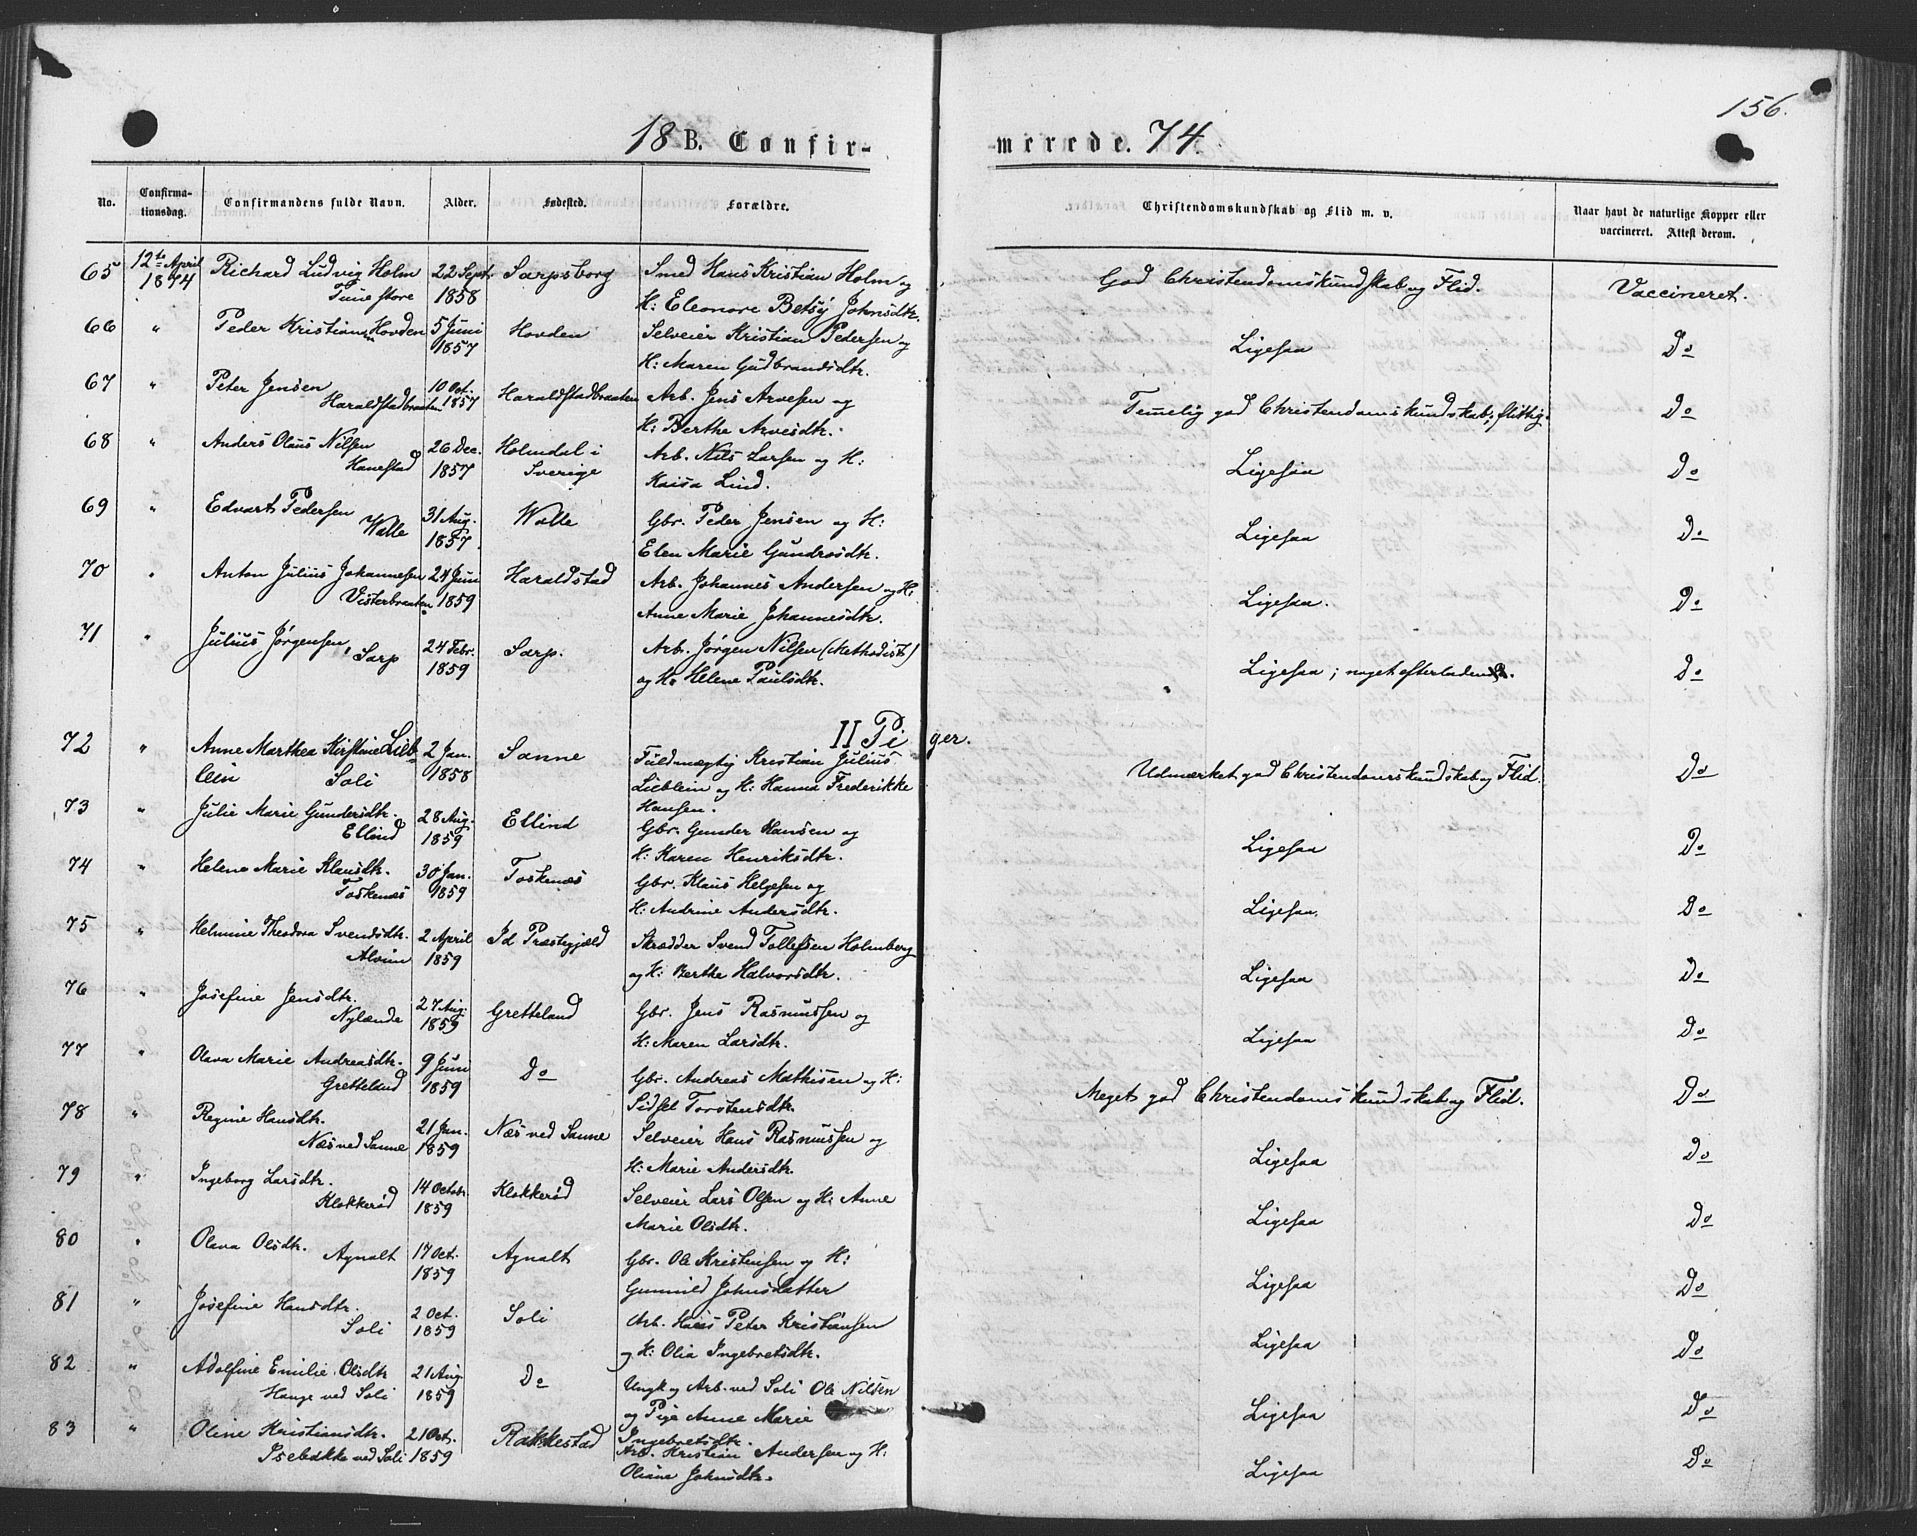 156.
18 B. Confir-
merede. 74.
No. Confirma-tionsdag. Confirmandens fulde Navn. Alder. Fødested. Forældre. Christendomskundskab og Flid m. v. Naar havt de naturlige Kopper eller vaccineret. Attest derom.
65 12te April Richard Ludvig Holm 22 Sept. Sarpsborg Smed Hans Kristian Holm og God Christendomskundskab og Flid. Vaccineret.
1874 Tune store 1858 H: Eleonore Betsy Johnsdtr.
66 " Peder Kristiansen Hovden 5 Juni Hovden Selveier Kristian Pedersen og Ligesaa Do
1857 H: Maren Gudbrandsdtr.
67 " Peter Jensen 10 Oct. Haraldstadbraaten Arb. Jens Arvesen og Temelig god Christendomskundskab; flittig. Do
Haraldstadbraaten 1857 H: Berthe Arvesdtr.
68 " Anders Olaus Nilsen 26 Dec. Holmdal i Arb. Nils Larsen og H: Ligesaa Do
Hanestad 1857 Sverige Kaisa Lind.
69 " Edvart Pedersen 31 Aug. Walle Gbr. Peder Jensen og H: Ligesaa Do
Walle 1857. Elen Marie Gundrosdtr.
70 " Anton Julius Johannesen 24 Juni Haraldstad Arb. Johannes Andersen og H: Ligesaa. Do
Visterbraaten 1859 Anne Marie Johannesdtr.
71 " Julius Jørgensen, 24 Febr. Sarp. Arb. Jørgen Nilsen (Methodist) Ligesaa; noget efterladende. Do
Sarp 1859 og H: Helene Paulsdtr.
II Piger.
72 " Anne Marthea Kirstine Lieb- 2 Jan. Sanne Fuldmægtig Kristian Julius Udmærket god Christendomskundskab og Flid. Do
lein Soli 1858 Lieblein og H: Hanna Frederikke
Hansen.
73 " Julie Marie Gundersdtr. 28 Aug. Ellind Gbr. Gunder Hansen og Ligesaa Do
Ellind 1859 H: Karen Henriksdtr.
74 " Helene Marie Klausdtr. 30 Jan. Toskenæs Gbr. Klaus Helgesen og Ligesaa. Do
Toskenæs 1859 H: Andrine Andersdtr.
75 " Helmine Theodora Svendsdtr. 2 April Id Præstegjæld Skrædder Svend Tollefsen Holmberg Ligesaa Do
Alvim 1859 og H: Berthe Halvorsdtr.
76 " Josefine Jensdtr. 27 Aug. Gretteland Gbr. Jens Rasmussen og Ligesaa Do
Nylænde 1859 H: Maren Larsdtr.
77 " Olava Marie Andreasdtr. 9 Juni Do Gbr. Andreas Mathisen og H: Meget god Christendomskundskab og Flid. Do
Gretteland 1859 Sidsel Torstensdtr.
78 " Regine Hansdtr. 21 Jan. Næs ved Sanne Selveier Hans Rasmussen og Ligesaa Do
Næs ved Sanne 1859 H: Marie Andersdtr.
79 " Ingeborg Larsdtr. 14 Octob. Klokkerød Selveier Lars Olsen og H: Anne Ligesaa Do
Klokkerød 1859 Marie Olsdtr.
80 " Olava Olsdtr. 17 Oct. Agnalt Gbr. Ole Kristensen og H: Ligesaa Do
Agnalt 1859 Gunnild Johnsdatter
81 " Josefine Hansdtr. 2 Oct. Soli Arb. Hans Peter Kristiansen Ligesaa Do
Soli 1859 og H: Olia Ingebretsdtr.
82 " Adolfine Emilie Olsdtr 21 Aug. Do Ungk og Arb. ved Soli Ole Nilsen Ligesaa Do
Hauge ved Soli 1859 og Pige Anne Marie
Ingebretsdtr.
83 " Oline Kristiansdtr. 21 Oct. Rakkestad Arb. Kristian Andersen og H: Ligesaa Do
Isebakke ved Soli 1859 Oliane Johnsdtr.